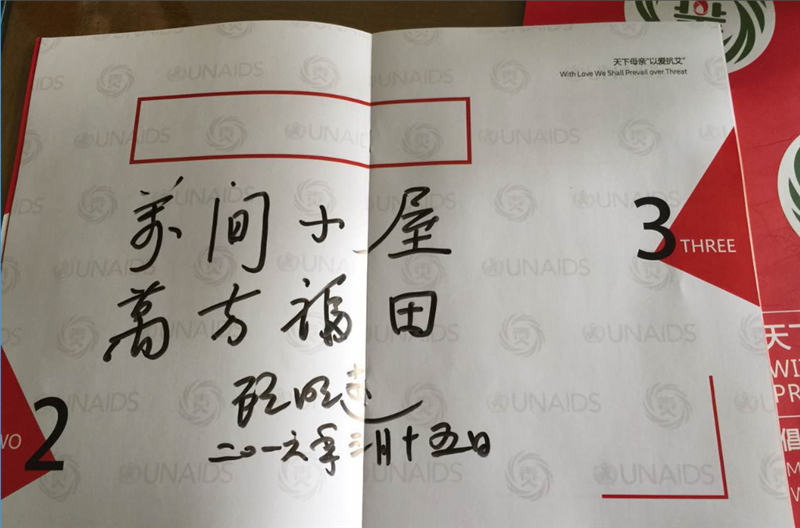 天下母亲“以爱抗艾”
With Love We Shall Prevail over Threat
UNAIDS
间小屋
3 THREE
萬方福田
二〇一六年三月十五日
2
WO
天下
WI
PR
倡